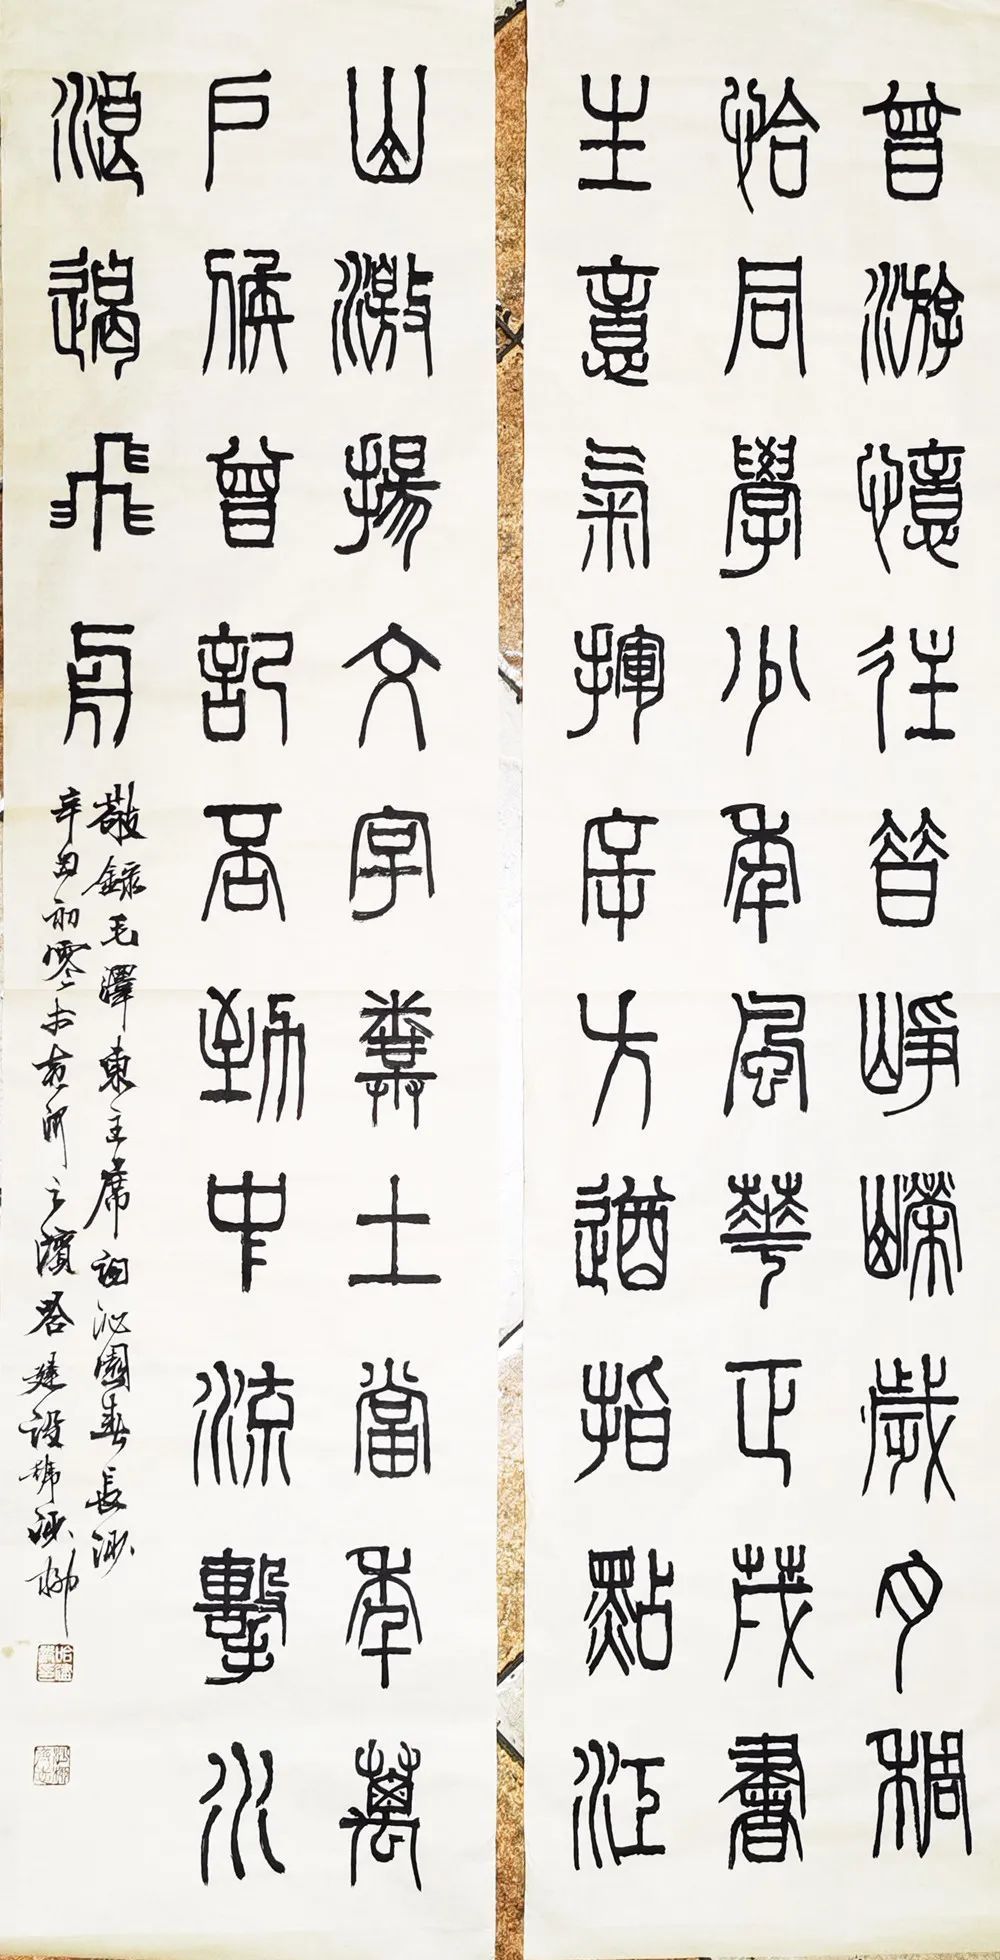 曾游憶往昔崢嶸歲月稠
恰同學少年風華正茂書
生意氣揮斥方遒指點江
山激揚文字糞土當年萬
戶侯曾記否到中流擊水
浪遏飛舟
敬録毛澤東主席詞沁園春長沙
辛丑初 之濱 建設